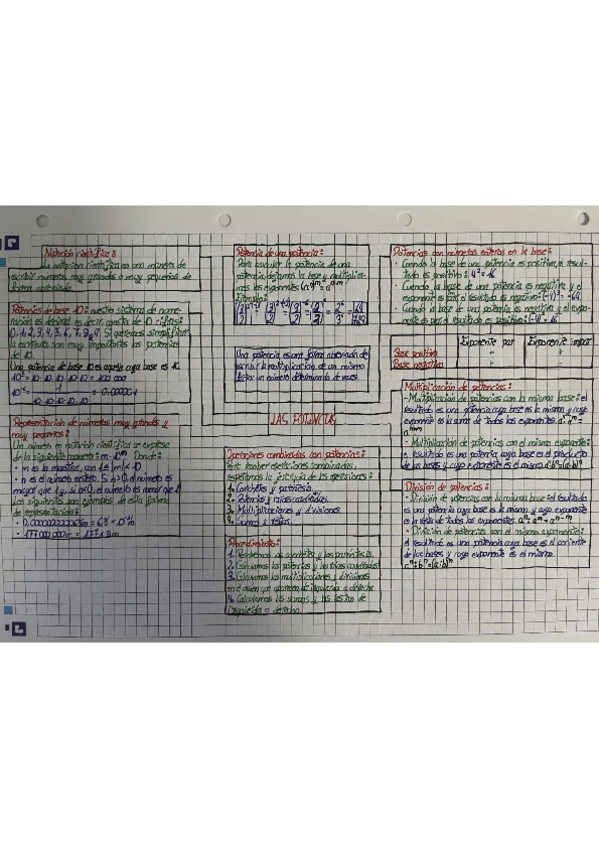 Notación científica:
La notación científica es una manera de
escribir números muy grandes o muy pequeños de
forma abreviada.
Potencias de base 10: nuestro sistema de nume-
ración es decimal, es decir, consta de 10 cifras:
0, 1, 2, 3, 4, 5, 6, 7, 8, 9. Si queremos simplificar
la escritura son muy importantes las potencias
de 10.
Una potencia de base 10 es aquella cuya base es 10.
10·10·10·10·10 = 100 000
Representación de números muy grandes y
muy pequeños:
Un número en notación científica se expresa
de la siguiente manera: m·10ⁿ. Donde:
· m es la mantisa, con 1≤|m|<10
· n es el número entero. Si n>0, el número es
mayor que 1 y, si n<0, el número es menor que 1
Los siguientes son ejemplos de esta forma
de representación:
Potencia de una potencia:
Para calcular la potencia de una
potencia, dejamos la base y multiplica-
mos los exponentes
Ejemplo:
Una potencia es una forma abreviada de
escribir la multiplicación de un mismo
factor un número determinado de veces.
LAS POTENCIAS
Operaciones combinadas con potencias:
Para resolver operaciones combinadas,
respetamos la jerarquía de las operaciones:
1. Corchetes y paréntesis.
2. Potencias y raíces cuadradas.
3. Multiplicaciones y divisiones.
4. Sumas y restas.
Procedimiento:
1. Resolvemos los corchetes y los paréntesis.
2. Calculamos las potencias y las raíces cuadradas.
3. Calculamos las multiplicaciones y divisiones
en el orden que aparecen de izquierda a derecha.
4. Calculamos las sumas y las restas de
izquierda a derecha.
Potencias con números enteros en la base:
· Cuando la base de una potencia es positiva, el resul-
tado es positivo: 4² = 16
· Cuando la base de una potencia es negativa y el
exponente es impar el resultado es negativo: (-4)³ = -64
· Cuando la base es negativa y el expo-
nente es par, el resultado es positivo: (-4)² = 16
Exponente par Exponente impar
Base positiva + +
Base negativa + -
Multiplicación de potencias:
· Multiplicación de potencias con la misma base: el
resultado es una potencia cuya base es la misma y cuyo
exponente es la suma de todos los exponentes. aⁿ·aᵐ=
aⁿ⁺ᵐ
· Multiplicación de potencias con el mismo exponente:
el resultado es una potencia cuya base es el producto
de las bases y cuyo exponente es el mismo. aⁿ·bⁿ=(a·b)ⁿ
División de potencias:
· División de potencias con la misma base: el resultado
es una potencia cuya base es la misma y cuyo exponente
es la resta de todos los exponentes. aⁿ:aᵐ=aⁿ⁻ᵐ
· División de potencias con el mismo exponente:
el resultado es una potencia cuya base es el cociente
de las bases y cuyo exponente es el mismo.